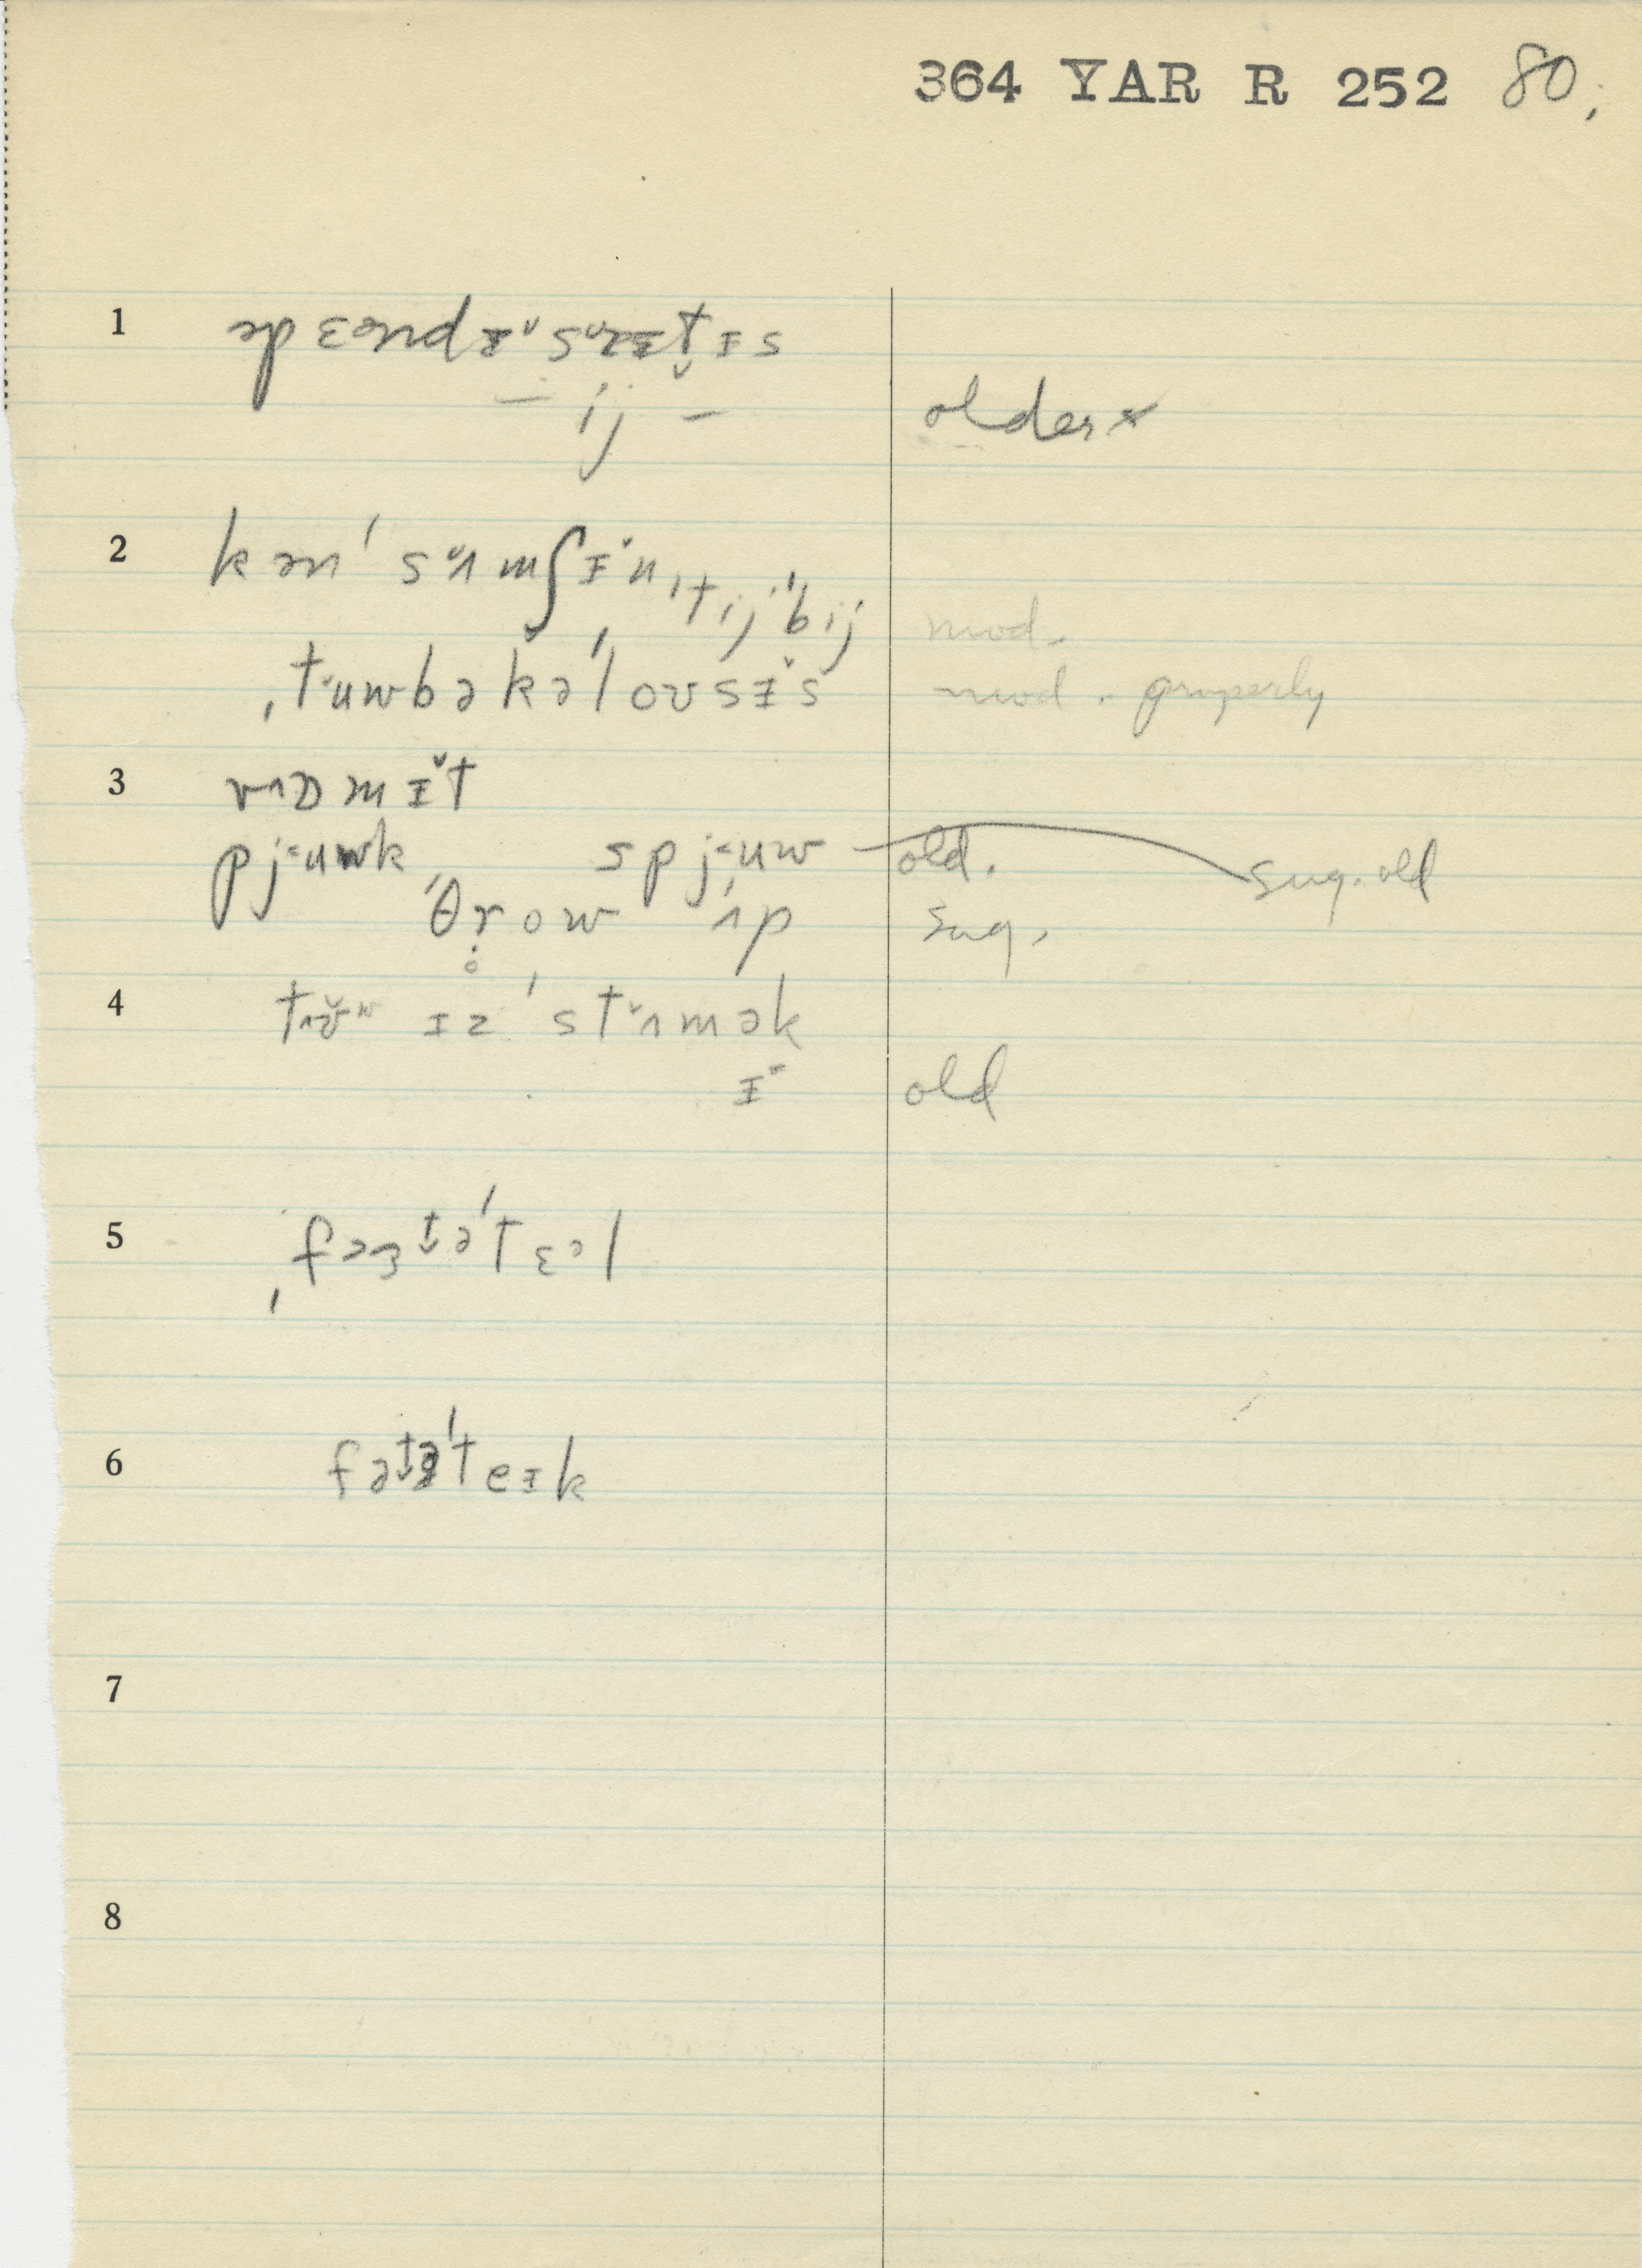 364 YAR R 252 80.
1 əpɛəndɪ˅s˅ɪtɪs
– ij – older ×
2 kən'sʌmʃɪ˅n ˌtij'bij mod.
ˌt˂uwbəkə'lousɪ˅s mod. properly
3 vɒmɪ˅t
pj˂uwk spj˂uw old. sug. old
'θrow 'ʌp sug.
4 ɪz 'st˅ʌmək
ɪ˅ old
5 ˌfɜtə'tɛəl
6 fətə'teɪk
7
8